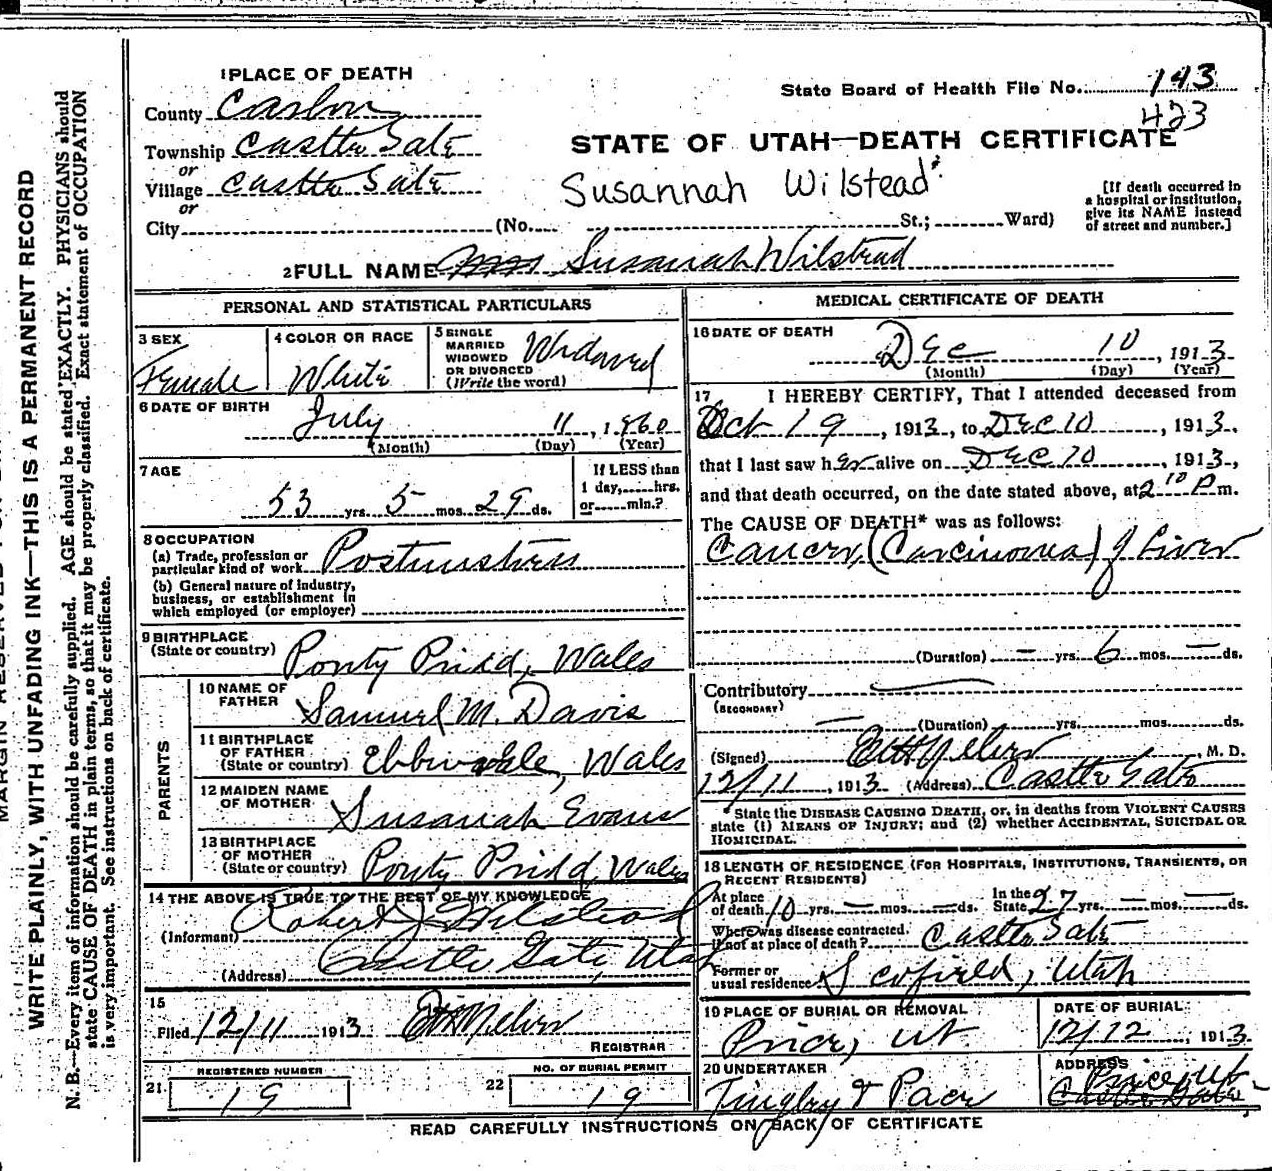 MARGIN RESERVED FOR
WRITE PLAINLY, WITH UNFADING INK—THIS IS A PERMANENT RECORD
N. B.—Every item of information should be carefully supplied. AGE should be stated EXACTLY. PHYSICIANS should
state CAUSE OF DEATH in plain terms, so that it may be properly classified. Exact statement of OCCUPATION
is very important. See instructions on back of certificate.
1 PLACE OF DEATH
County Carbon
Township Castle Gate
or
Village Castle Gate
or
City
State Board of Health File No. 143
423
STATE OF UTAH—DEATH CERTIFICATE
Susannah Wilstead
(No. St.; Ward)
[If death occurred in
a hospital or institution,
give its NAME instead
of street and number.]
2 FULL NAME Mrs Susanah Wilstead
PERSONAL AND STATISTICAL PARTICULARS
3 SEX
Female
4 COLOR OR RACE
White
5 SINGLE
MARRIED
WIDOWED
OR DIVORCED
(Write the word)
Widowed
6 DATE OF BIRTH
July 11, 1860
(Month) (Day) (Year)
7 AGE
53 yrs. 5 mos. 29 ds.
If LESS than
1 day, hrs.
or min.?
8 OCCUPATION
(a) Trade, profession or
particular kind of work Postmistress
(b) General nature of industry,
business, or establishment in
which employed (or employer)
9 BIRTHPLACE
(State or country) Ponty Pridd, Wales
PARENTS
10 NAME OF
FATHER Samuel M. Davis
11 BIRTHPLACE
OF FATHER
(State or country) Ebbwvale, Wales
12 MAIDEN NAME
OF MOTHER Susanah Evans
13 BIRTHPLACE
OF MOTHER
(State or country) Ponty Pridd, Wales
14 THE ABOVE IS TRUE TO THE BEST OF MY KNOWLEDGE
(Informant) Robert J Wilstead
(Address) Castle Gate, Utah
15
Filed 12/11 1913
REGISTRAR
REGISTERED NUMBER
21 19
NO. OF BURIAL PERMIT
22 19
MEDICAL CERTIFICATE OF DEATH
16 DATE OF DEATH
Dec 10, 1913
(Month) (Day) (Year)
17 I HEREBY CERTIFY, That I attended deceased from
Oct 19, 1913, to Dec 10, 1913,
that I last saw her alive on Dec 10, 1913,
and that death occurred, on the date stated above, at 2 10 P m.
The CAUSE OF DEATH* was as follows:
Cancer, (Carcinoma) of Liver
(Duration) — yrs. 6 mos. — ds.
Contributory
(SECONDARY)
(Duration) yrs. mos. ds.
(Signed) , M. D.
12/11, 1913 (Address) Castle Gate
*State the DISEASE CAUSING DEATH, or, in deaths from VIOLENT CAUSES
state (1) MEANS OF INJURY; and (2) whether ACCIDENTAL, SUICIDAL OR
HOMICIDAL.
18 LENGTH OF RESIDENCE (FOR HOSPITALS, INSTITUTIONS, TRANSIENTS, OR
RECENT RESIDENTS)
At place
of death 10 yrs. — mos. — ds.
In the
State 27 yrs. — mos. — ds.
Where was disease contracted.
if not at place of death? Castle Gate
Former or
usual residence Scofield, Utah
19 PLACE OF BURIAL OR REMOVAL
Price, Ut
DATE OF BURIAL
12/12, 1913
20 UNDERTAKER
Tingley & Pace
ADDRESS
Price, Ut
Castle Gate
READ CAREFULLY INSTRUCTIONS ON BACK OF CERTIFICATE